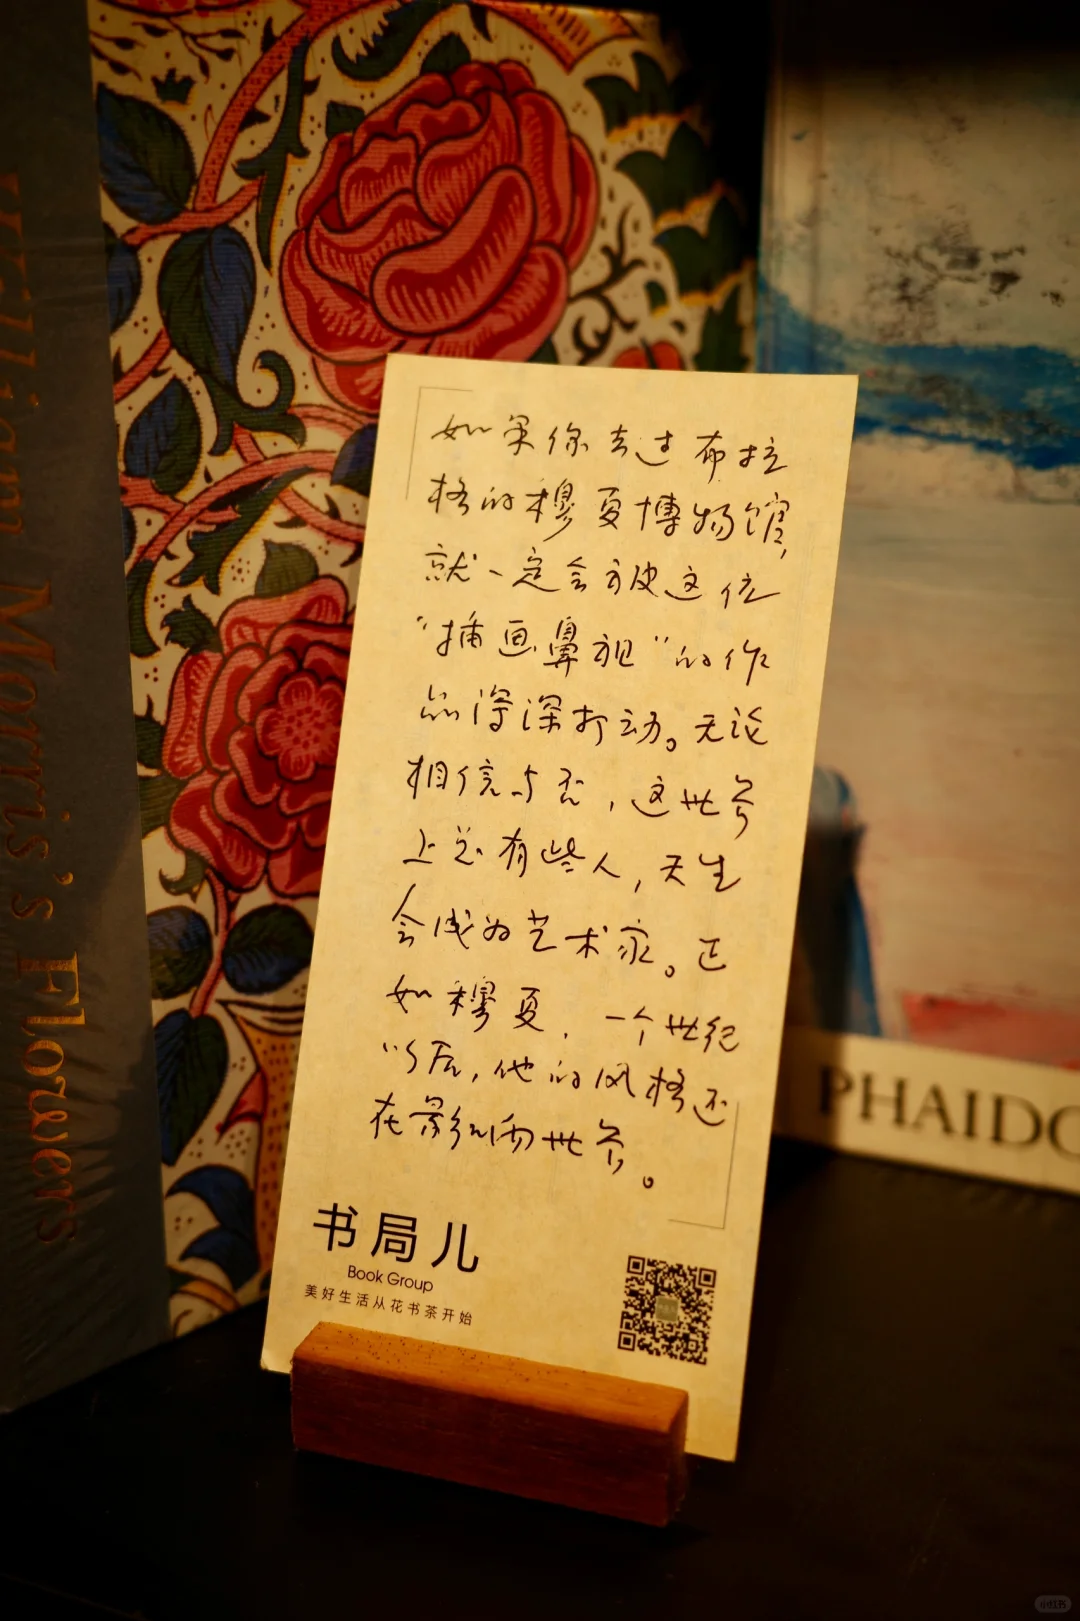 William Morris's Flowers
如果你去过布拉
格的穆夏博物馆，
就一定会被这位
“插画鼻祖”的作
品深深打动。无论
相信与否，这世界
上总有些人，天生
会成为艺术家。正
如穆夏，一个世纪
以后，他的风格还
在影响世界。
书局儿
Book Group
美好生活从花书茶开始
PHAIDO
小红书